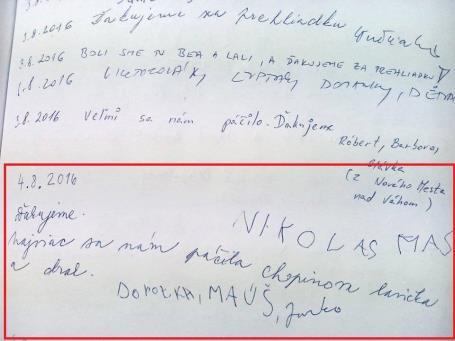 3.8.2016 Ďakujeme za prehliadku
3.8.2016 BOLI SME TU BEA A LALI, A ĎAKUJEME ZA PREHLIADKU!
3.8.2016
3.8.2016 Veľmi sa nám páčilo. Ďakujeme
Róbert, Barbora,
Slávka
(z Nového Mesta
nad Váhom)
4.8.2016
Ďakujeme.
NIKOLAS MAS
Najviac sa nám páčila chopinova lavička
a drak.
DOROTKA, MAÚŠ, Janko